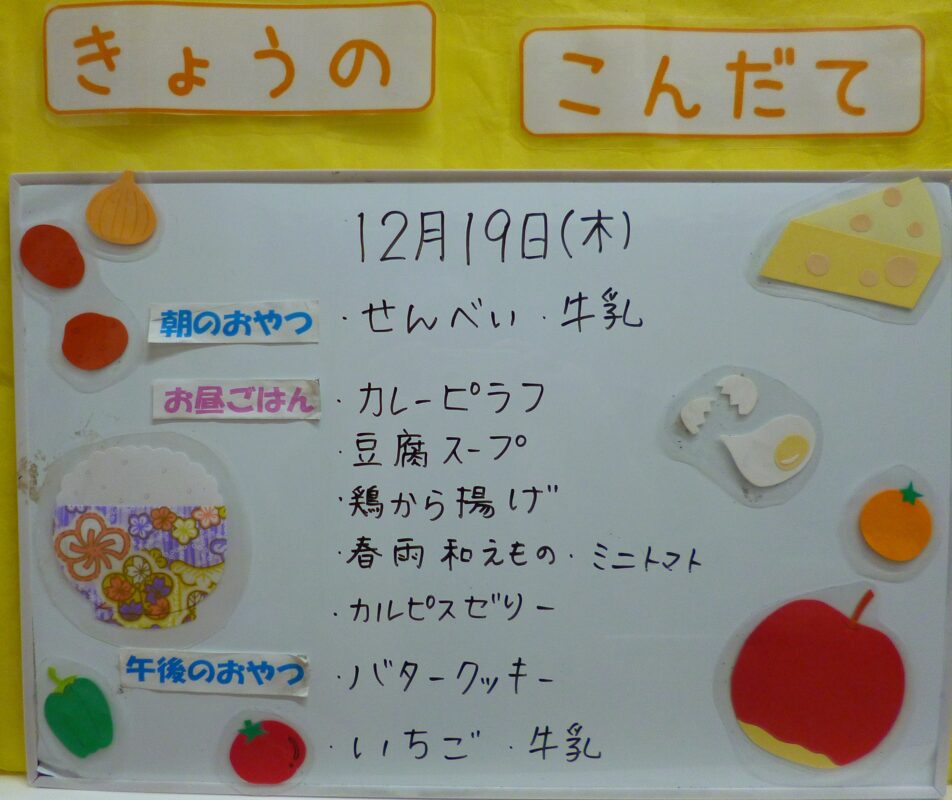 きょうの こんだて
12月19日(木)
朝のおやつ ・せんべい ・牛乳
お昼ごはん ・カレーピラフ
・豆腐スープ
・鶏から揚げ
・春雨和えもの・ミニトマト
・カルピスゼリー
午後のおやつ ・バタークッキー
・いちご ・牛乳